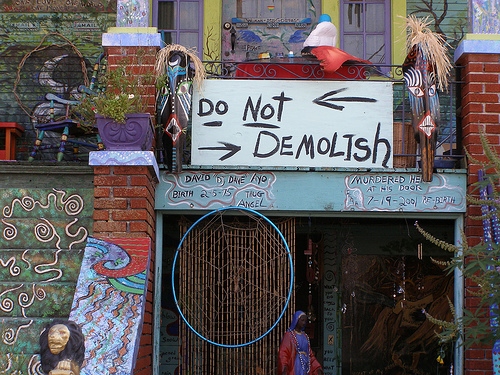 DO NOT
DEMOLISH
DAVID D. DAVE NYO
BIRTH 2-5-15 THUG
ANGEL
MURDERED HE
AT HIS DOOR
7-19-2001 RE-BIRTH